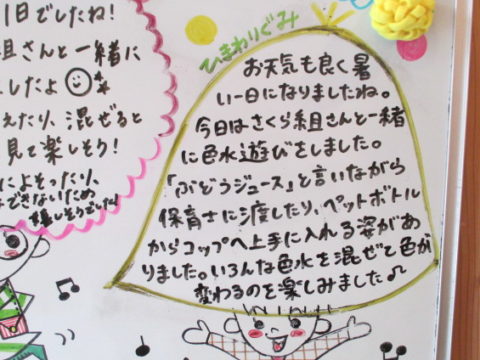 1日でしたね!
組さんと一緒に
したよ
えたり、混ぜると
見て楽しそう!
によそったり、
できないため
嬉しそうでした
ひまわりぐみ
お天気も良く暑
い一日になりましたね。
今日はさくら組さんと一緒
に色水遊びをしました。
「ぶどうジュース」と言いながら
保育士に渡したり、ペットボトル
からコップへ上手に入れる姿があ
りました。いろんな色水を混ぜて色が
変わるのを楽しみました♪